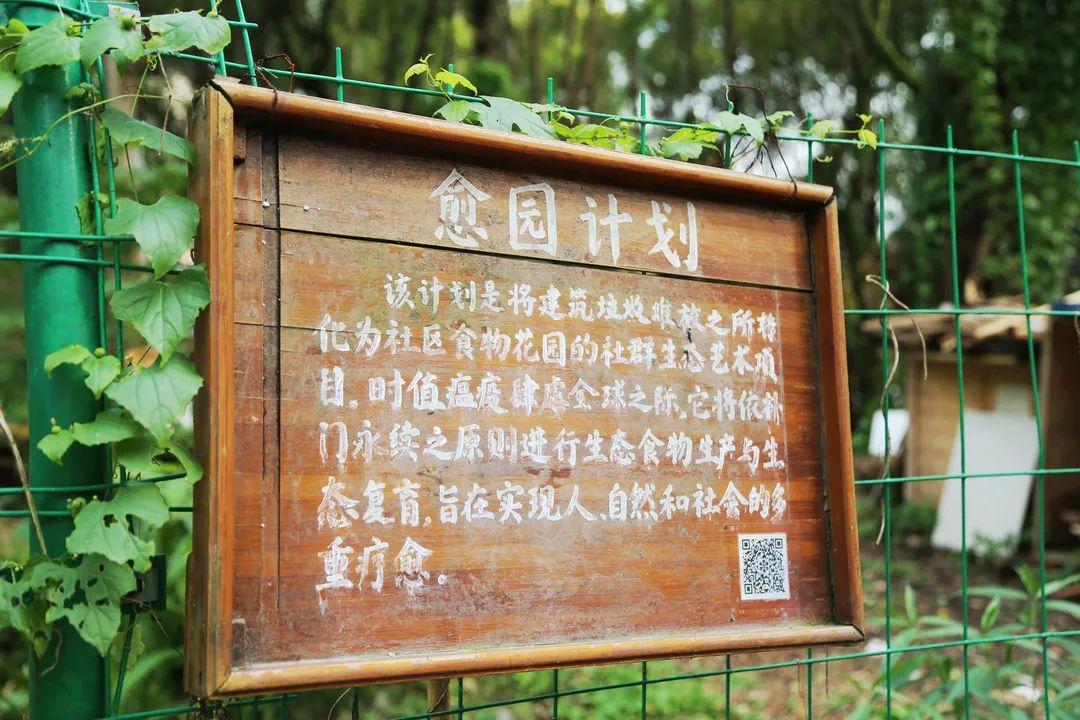 愈园计划
该计划是将建筑垃圾堆放之所转
化为社区食物花园的社群生态艺术项
目。时值瘟疫肆虐全球之际，它将依朴
门永续之原则进行生态食物生产与生
态复育，旨在实现人、自然和社会的多
重疗愈。